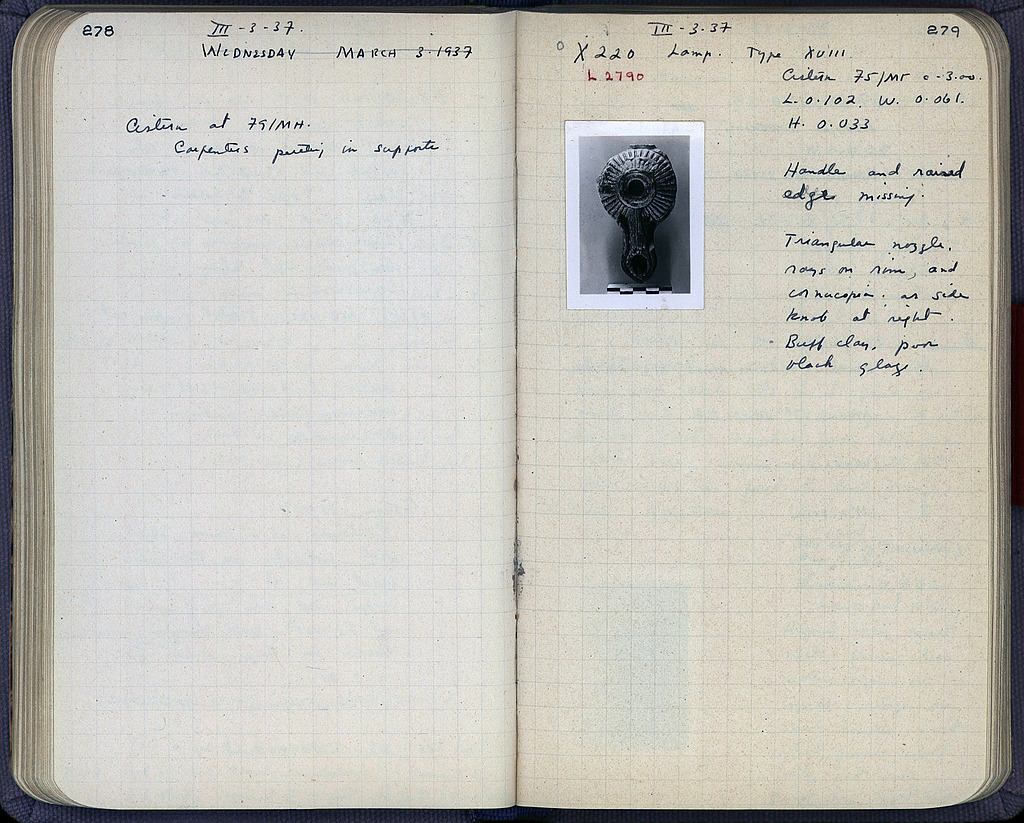 278
III-3-37.
WEDNESDAY MARCH 3. 1937
Cistern at 79/MH.
Carpenters putting in supports
III-3-37
279
X 220 Lamp. Type XVIII.
L 2790
Cistern 75/ΜΓ c-3.00.
L. 0.102. W. 0.061.
H. 0.033
Handle and raised
edges missing.
Triangular nozzle,
rays on rim, and
cornucopia. as side
knob at right.
Buff clay, poor
black glaze.